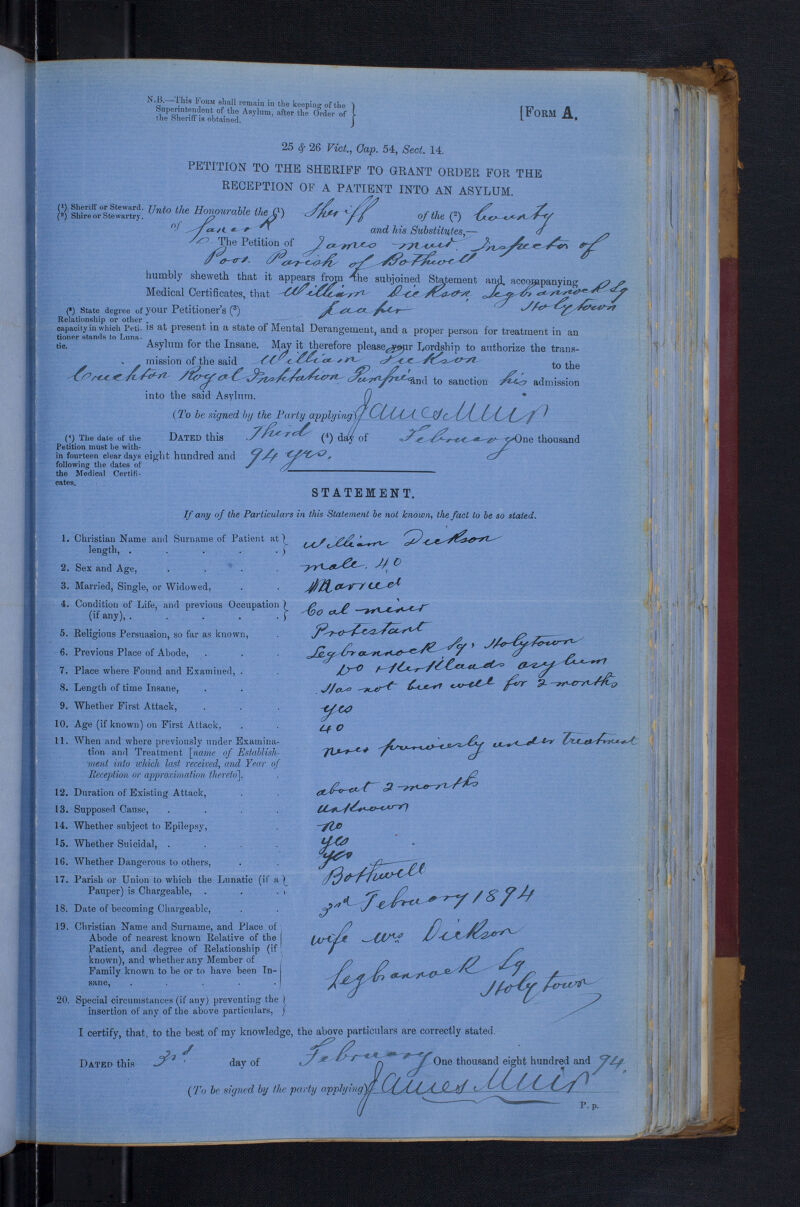 N.B.—This Form shall remain in the keeping of the
Superintendent of the Asylum, after the Order of
the Sheriff is obtained.
[Form A.
25 & 26 Vict., Cap. 54, Sect. 14.
PETITION TO THE SHERIFF TO GRANT ORDER FOR THE
RECEPTION OF A PATIENT INTO AN ASYLUM.
(¹) Sheriff or Steward.
(²) Shire or Stewartry.
Unto the Honourable the (¹) Sheriff of the (²) County
of Lanark and his Substitutes,—
The Petition of James Muir Inspector of
Poor Parish of Bothwell
humbly sheweth that it appears from the subjoined Statement and accompanying
Medical Certificates, that William Dickson Legbrannock Sq
Holytown
(³) State degree of
Relationship or other
capacity in which Peti-
tioner stands to Luna-
tic.
your Petitioner's (³) pauper
is at present in a state of Mental Derangement, and a proper person for treatment in an
Asylum for the Insane. May it therefore please your Lordship to authorize the trans-
mission of the said William Dickson to the
Crichton Royal Institution Dumfries and to sanction his admission
into the said Asylum.
(To be signed by the Party applying) James Muir
(⁴) The date of the
Petition must be with-
in fourteen clear days
following the dates of
the Medical Certifi-
cates.
Dated this Third (⁴) day of February One thousand
eight hundred and 94 yrs.
STATEMENT.
If any of the Particulars in this Statement be not known, the fact to be so stated.
1. Christian Name and Surname of Patient at
length, . William Dickson
2. Sex and Age, male. 40
3. Married, Single, or Widowed, Married
4. Condition of Life, and previous Occupation
(if any), . Coal-miner
5. Religious Persuasion, so far as known, Protestant
6. Previous Place of Abode, Legbrannock Sq. Holytown
7. Place where Found and Examined, . Do & Kirklands asylum
8. Length of time Insane, Has not been well for 2 months
9. Whether First Attack, yes
10. Age (if known) on First Attack, 40
11. When and where previously under Examina-
tion and Treatment [name of Establish-
ment into which last received, and Year of
Reception or approximation thereto]. never previously under treatment
12. Duration of Existing Attack, about 2 months
13. Supposed Cause, unknown
14. Whether subject to Epilepsy, no
15. Whether Suicidal, . yes
16. Whether Dangerous to others, yes
17. Parish or Union to which the Lunatic (if a
Pauper) is Chargeable, . Bothwell
18. Date of becoming Chargeable, 3rd February 1894
19. Christian Name and Surname, and Place of
Abode of nearest known Relative of the
Patient, and degree of Relationship (if
known), and whether any Member of
Family known to be or to have been In-
sane, wife Mrs Dickson
Legbrannock Sq
Holytown
20. Special circumstances (if any) preventing the
insertion of any of the above particulars,
I certify, that, to the best of my knowledge, the above particulars are correctly stated.
Dated this 3rd day of February One thousand eight hundred and 94.
(To be signed by the party applying) James Muir
P. p.